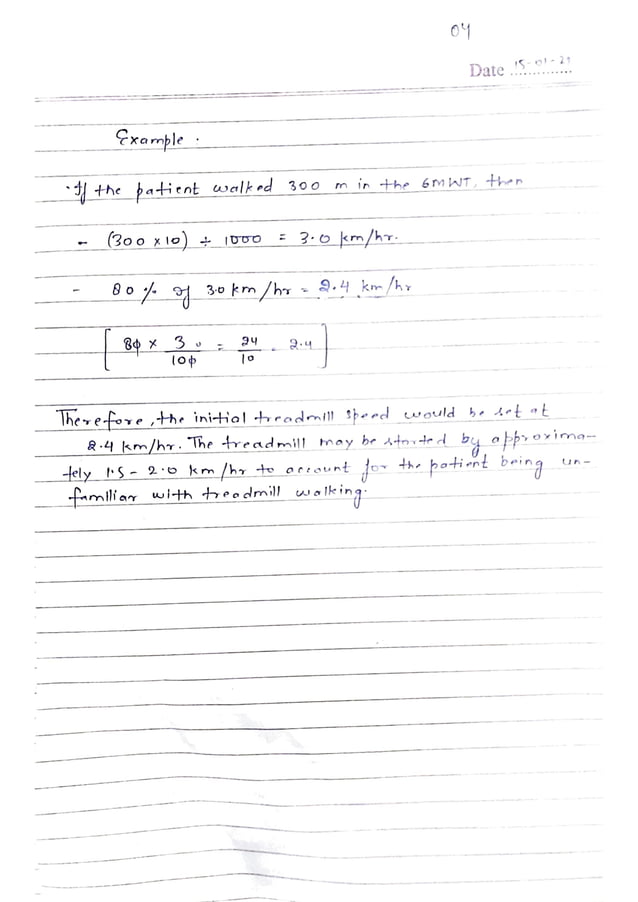 04
Date 15-01-21
Example.
· If the patient walked 300 m in the 6MWT, then
- (300 x 10) ÷ 1000 = 3.0 km/hr.
- 80 % of 3.0 km/hr = 2.4 km/hr
[ 80 x 3.0 / 100 = 24 / 10 = 2.4 ]
Therefore, the initial treadmill speed would be set at
2.4 km/hr. The treadmill may be started by approxima-
tely 1.5 - 2.0 km/hr to account for the patient being un-
familiar with treadmill walking.